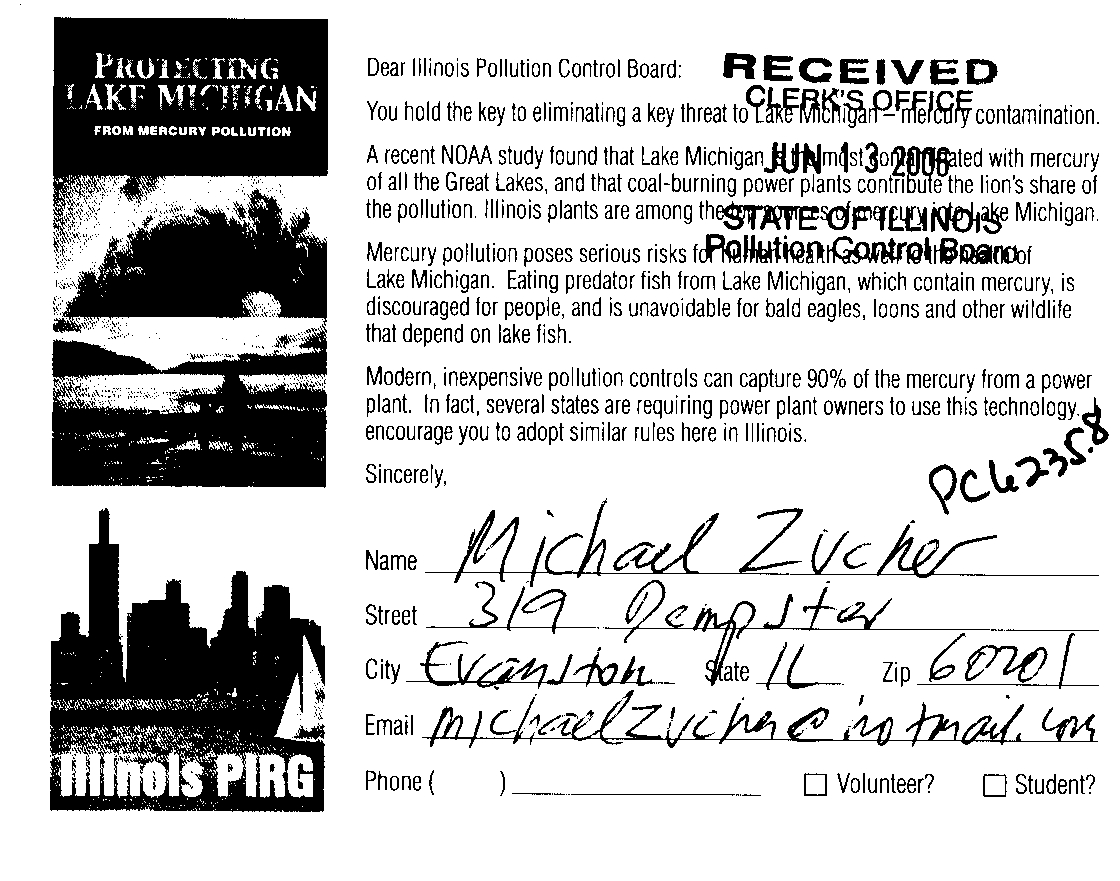 PROTECTING
LAKE MICHIGAN
FROM MERCURY POLLUTION
Illinois PIRG
Dear Illinois Pollution Control Board:
RECEIVED
CLERK'S OFFICE
JUN 13 2006
STATE OF ILLINOIS
Pollution Control Board
You hold the key to eliminating a key threat to Lake Michigan – mercury contamination.
A recent NOAA study found that Lake Michigan is the most contaminated with mercury
of all the Great Lakes, and that coal-burning power plants contribute the lion's share of
the pollution. Illinois plants are among the top sources of mercury into Lake Michigan.
Mercury pollution poses serious risks for human health as well to the health of
Lake Michigan. Eating predator fish from Lake Michigan, which contain mercury, is
discouraged for people, and is unavoidable for bald eagles, loons and other wildlife
that depend on lake fish.
Modern, inexpensive pollution controls can capture 90% of the mercury from a power
plant. In fact, several states are requiring power plant owners to use this technology. I
encourage you to adopt similar rules here in Illinois.
Sincerely,
PC#6235.8
Name Michael Zucher
Street 319 Dempster
City Evanston State IL Zip 60201
Email michaelzucher@hotmail.com
Phone ( )
Volunteer? Student?